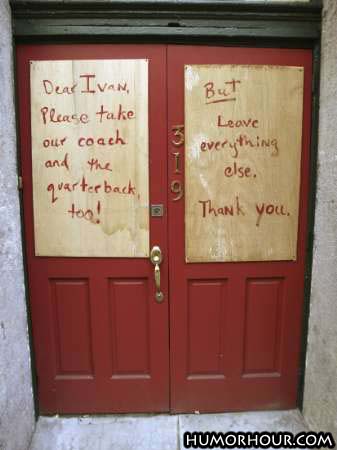 Dear Ivan,
Please take
our coach
and the
quarterback,
too!
319
But
Leave
everything
else.
Thank you.
HUMORHOUR.COM